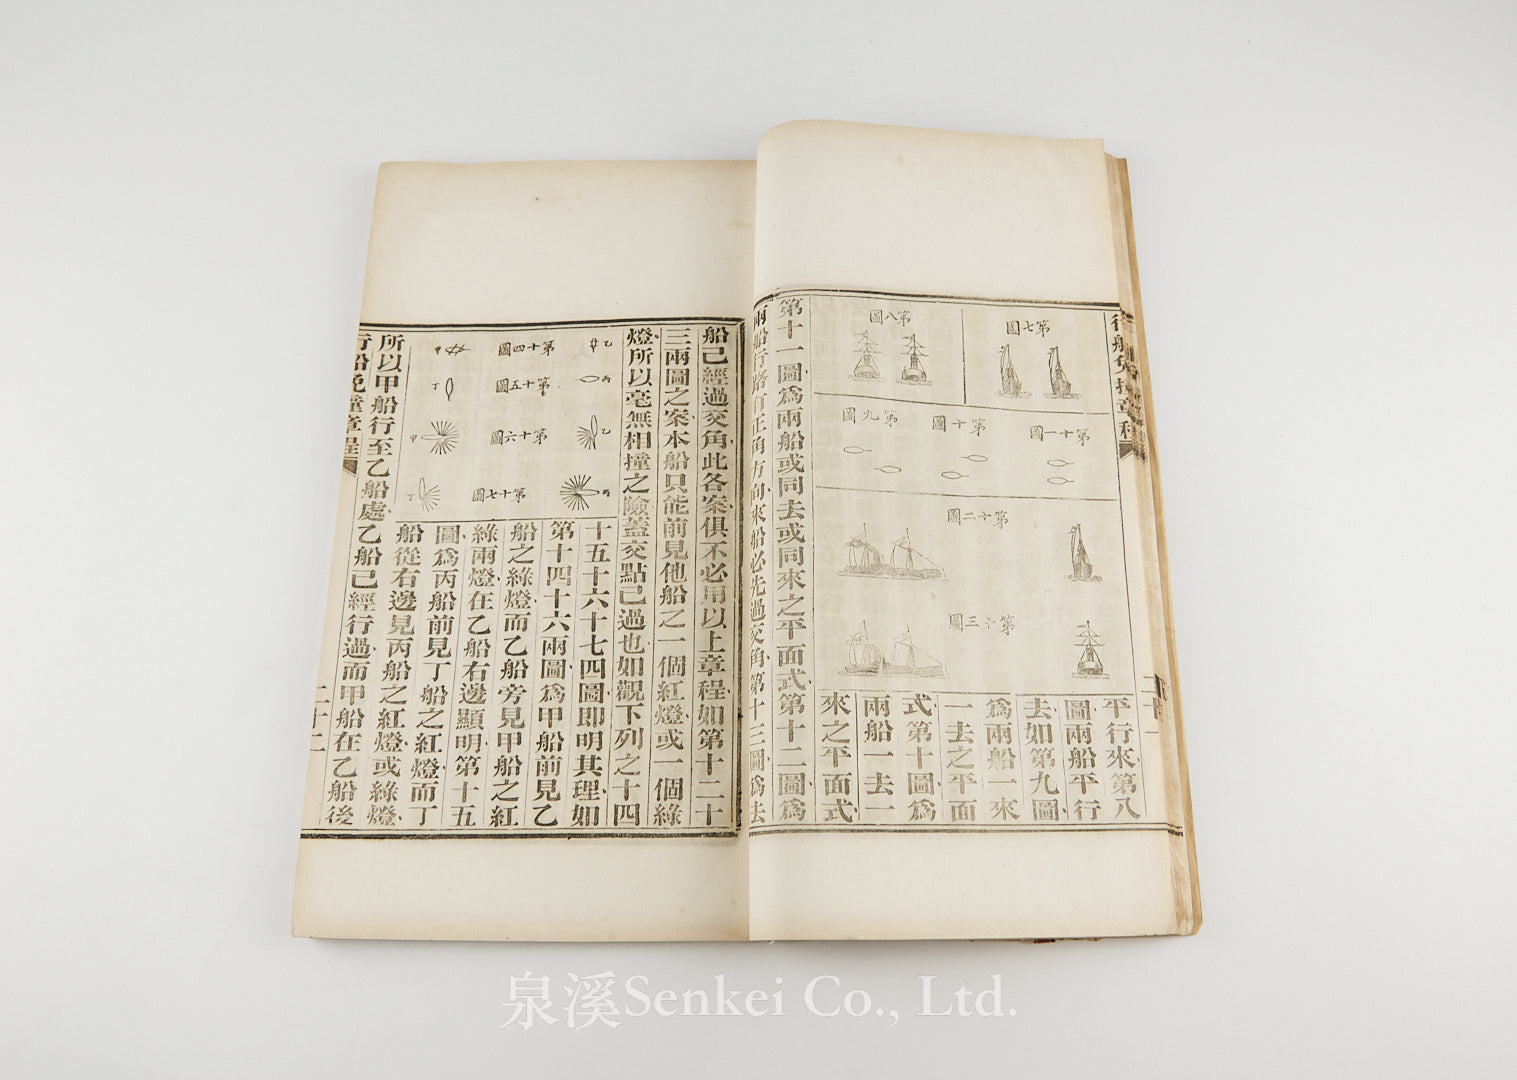 行船免撞章程
第七圖
第八圖
第九圖
第十圖
第十一圖
第十二圖
第十三圖
平行來第八
圖兩船平行
去如第九圖
爲兩船一來
一去之平面
式第十圖爲
兩船一去一
來之平面式
第十一圖爲兩船或同去或同來之平面式第十二圖爲
兩船行路有正角方向來船必先過交角第十三圖爲去
船已經過交角此各案俱不必用以上章程如第十二十
三兩圖之案本船只能前見他船之一個紅燈或一個綠
燈所以毫無相撞之險蓋交點已過也如觀下列之十四
乙
第十四圖
甲
丙
第十五圖
丁
乙
第十六圖
甲
丙
第十七圖
丁
十五十六十七四圖卽明其理如
第十四十六兩圖爲甲船前見乙
船之綠燈而乙船旁見甲船之紅
綠兩燈在乙船右邊顯明第十五
圖爲丙船前見丁船之紅燈而丁
船從右邊見丙船之紅燈或綠燈
所以甲船行至乙船處乙船已經行過而甲船在乙船後
行船免撞章程
二十二
泉溪Senkei Co., Ltd.